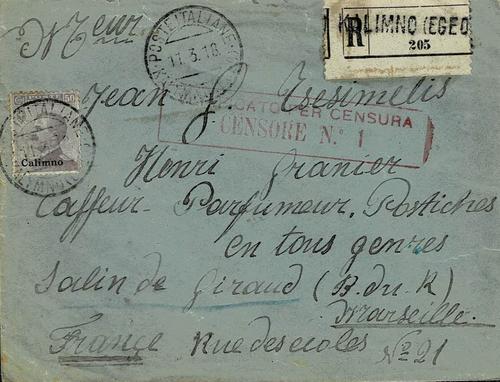 Mr eur
R KALIMNO (EGEO)
205
POSTE ITALIANE
11.3.18
Jean J. Tsesimelis
CATO PER CENSURA
CENSORE N.° 1
Calimno
Henri Granier
Coiffeur - Parfumeur, Postiches
en tous genres
Salin de Giraud (B. du R)
Marseille.
France Rue des ecoles No 21